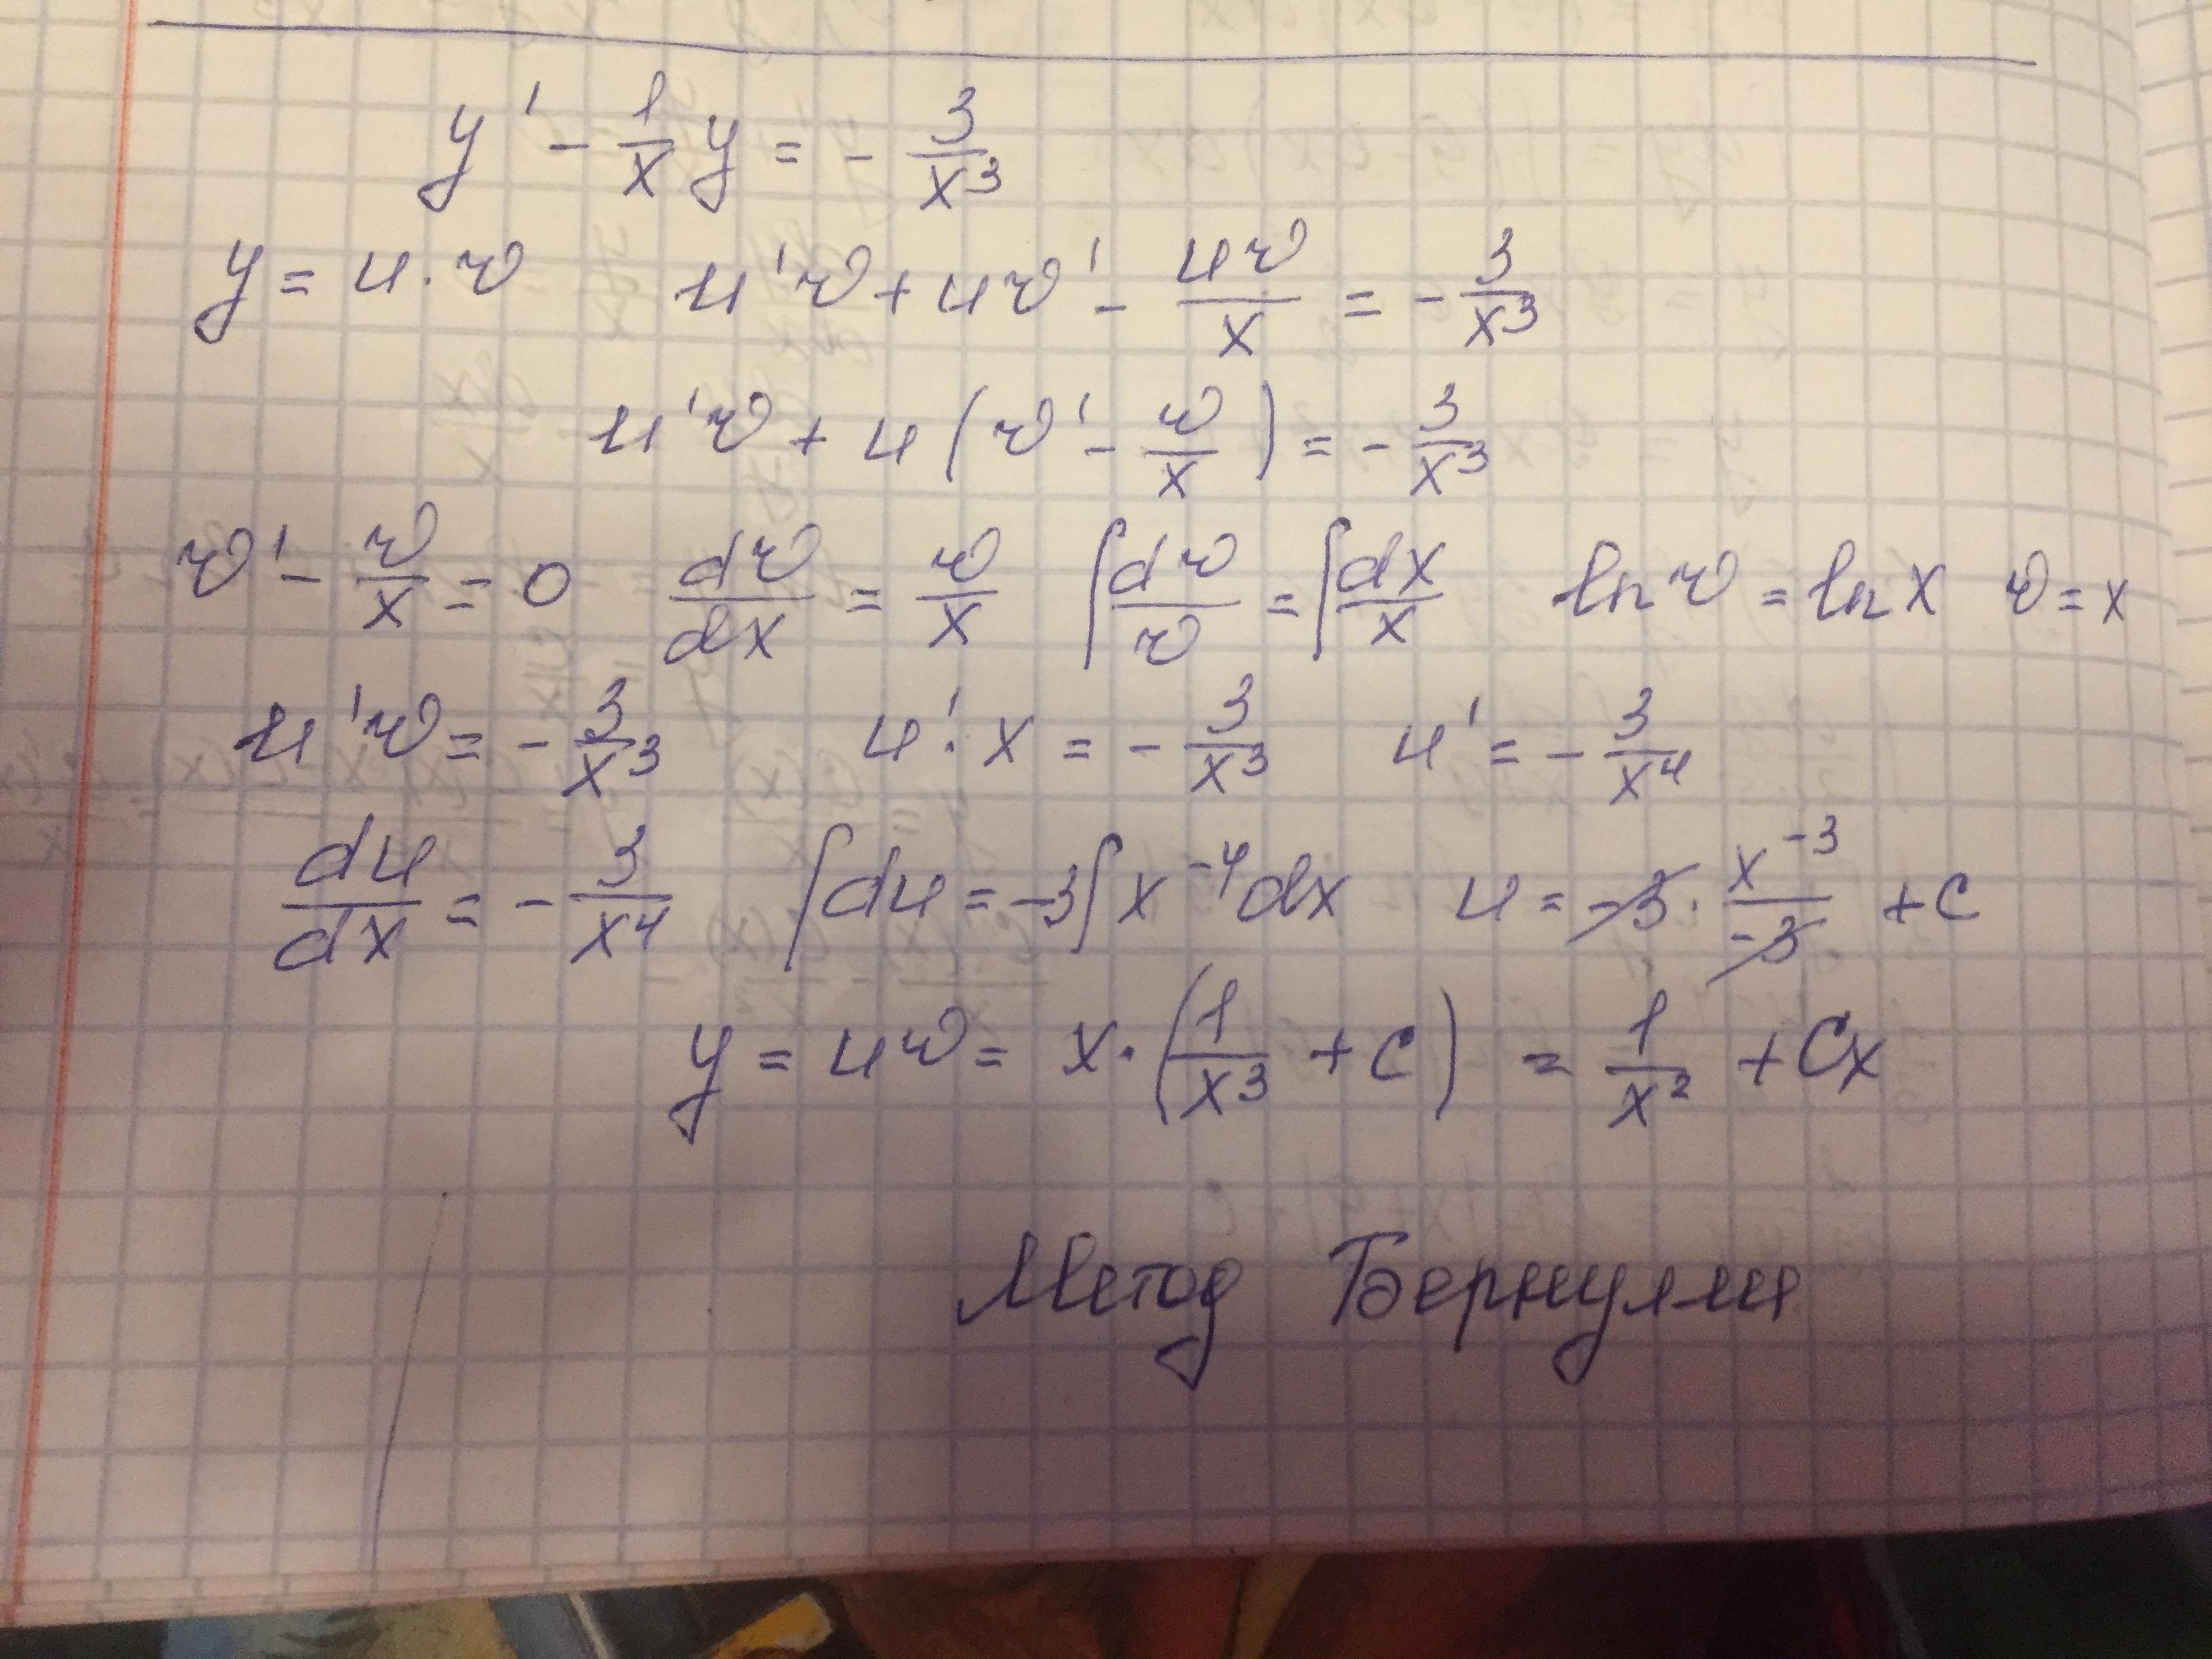 y' - 1/x y = - 3/x³
y = u · v   u'v + uv' - uv/x = - 3/x³
u'v + u (v' - v/x) = - 3/x³
v' - v/x = 0   dv/dx = v/x   ∫ dv/v = ∫ dx/x   ln v = ln x   v = x
u'v = - 3/x³   u' · x = - 3/x³   u' = - 3/x⁴
du/dx = - 3/x⁴   ∫ du = -3 ∫ x⁻⁴ dx   u = -3 · x⁻³/-3 + c
y = uv = x · (1/x³ + c) = 1/x² + Cx
Метод Бернулли